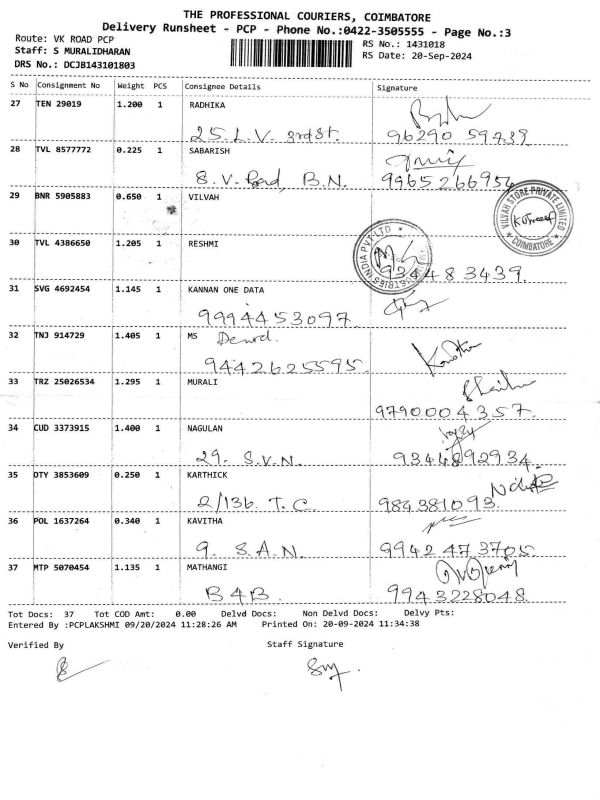 THE PROFESSIONAL COURIERS, COIMBATORE
Delivery Runsheet - PCP - Phone No.:0422-3505555 - Page No.:3
Route: VK ROAD PCP
RS No.: 1431018
Staff: S MURALIDHARAN
RS Date: 20-Sep-2024
DRS No.: DCJB143101803
S No Consignment No Weight PCS Consignee Details Signature
27 TEN 29019 1.200 1 RADHIKA
25. L. V. 3rd St. 96290 59739
28 TVL 8577772 0.225 1 SABARISH
8. V. Road, B.N. 9965266956
29 BNR 5905883 0.650 1 VILVAH
VILVAH STORE PRIVATE LIMITED
COIMBATORE
30 TVL 4386650 1.205 1 RESHMI
INDIA PVT LTD
934483439.
31 SVG 4692454 1.145 1 KANNAN ONE DATA
9994453097
32 TNJ 914729 1.405 1 MS
9442625595.
33 TRZ 25026534 1.295 1 MURALI
9790004357.
34 CUD 3373915 1.400 1 NAGULAN
29. S.V.N. 9344892934.
35 DTY 3853609 0.250 1 KARTHICK
2/136. T.C.
36 POL 1637264 0.340 1 KAVITHA
9. S.A.N. 9942473705
37 MTP 5070454 1.135 1 MATHANGI
B4B. 9943228048.
Tot Docs: 37 Tot COD Amt: 0.00 Delvd Docs: Non Delvd Docs: Delvy Pts:
Entered By :PCPLAKSHMI 09/20/2024 11:28:26 AM Printed On: 20-09-2024 11:34:38
Verified By Staff Signature